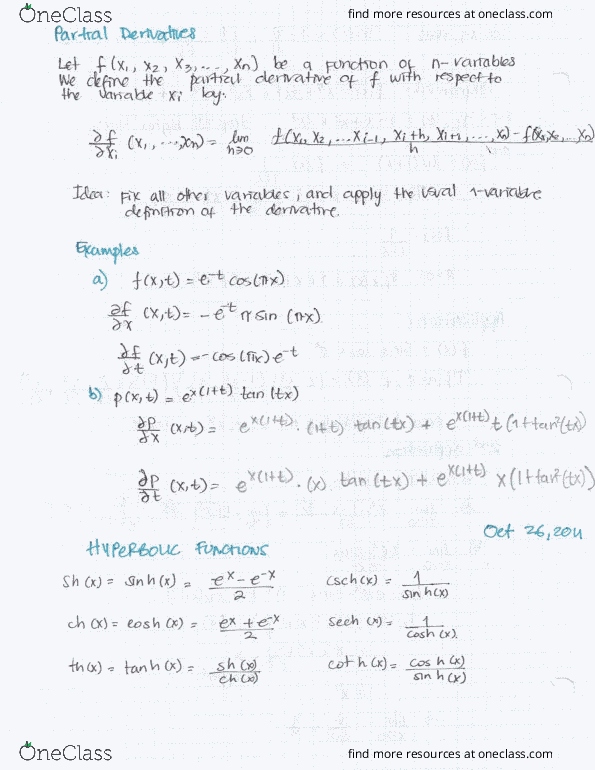 OneClass
find more resources at oneclass.com
Partial Derivatives
Let f(x₁, x₂, x₃, ..., xₙ) be a function of n-variables
We define the partial derivative of f with respect to
the variable xᵢ by:
∂f/∂xᵢ (x₁, ..., xₙ) = lim h→0 f(x₁, x₂, ... xᵢ₋₁, xᵢ+h, xᵢ₊₁, ..., xₙ) - f(x₁, x₂, ... xₙ) / h
Idea: Fix all other variables, and apply the usual 1-variable
definition of the derivative.
Examples
a) f(x,t) = e^-t cos(πx)
∂f/∂x (x,t) = - e^-t π sin (πx)
∂f/∂t (x,t) = - cos(πx) e^-t
b) p(x,t) = e^x(1+t) tan(tx)
∂p/∂x (x,t) = e^x(1+t) · (1+t) tan(tx) + e^x(1+t) t (1+tan²(tx))
∂p/∂t (x,t) = e^x(1+t) · (x) tan(tx) + e^x(1+t) x (1+tan²(tx))
Oct 26, 2011
HYPERBOLIC FUNCTIONS
sh(x) = sinh(x) = e^x - e^-x / 2 csch(x) = 1 / sinh(x)
ch(x) = cosh(x) = e^x + e^-x / 2 sech(x) = 1 / cosh(x)
th(x) = tanh(x) = sh(x) / ch(x) coth(x) = cosh(x) / sinh(x)
OneClass
find more resources at oneclass.com